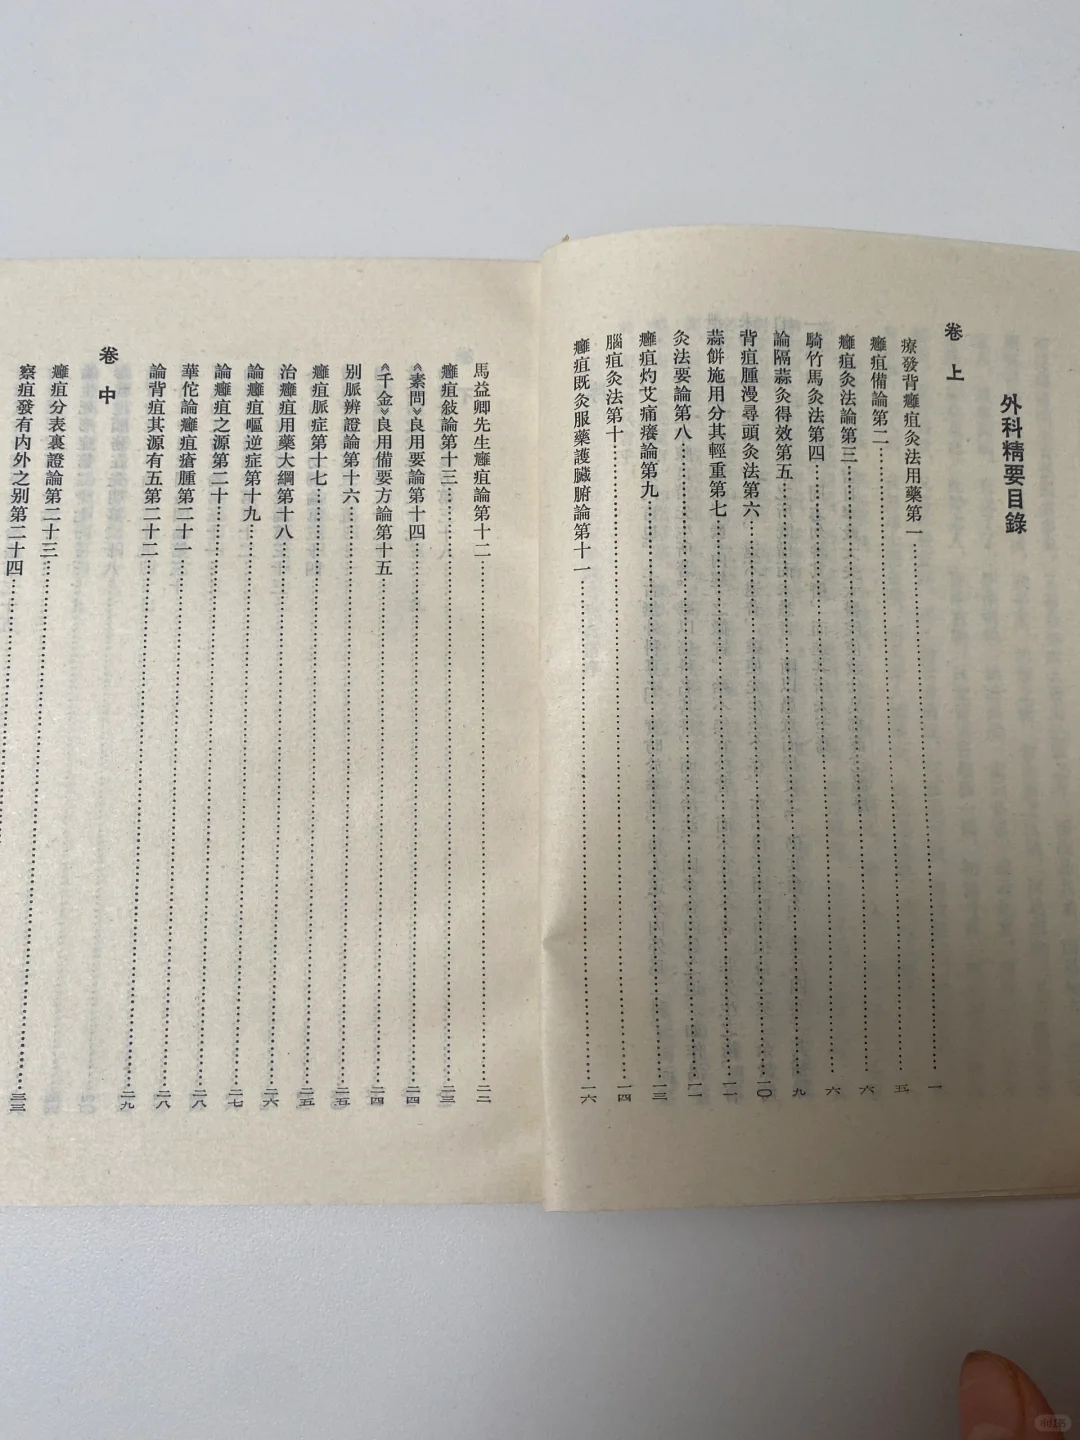 外科精要目錄
卷上
療發背癰疽灸法用藥第一……一
癰疽備論第二……五
癰疽灸法論第三……六
騎竹馬灸法第四……六
論隔蒜灸得效第五……九
背疽腫漫尋頭灸法第六……一〇
蒜餅施用分其輕重第七……一一
灸法要論第八……一一
癰疽灼艾痛癢論第九……一三
腦疽灸法第十……一四
癰疽既灸服藥護臟腑論第十一……一六
馬益卿先生癰疽論第十二……二二
癰疽敍論第十三……二三
《素問》良用要論第十四……二四
《千金》良用備要方論第十五……二四
别脈辨證論第十六……二五
癰疽脈症第十七……二五
治癰疽用藥大綱第十八……二六
論癰疽嘔逆症第十九……二七
論癰疽之源第二十……二八
華佗論癰疽瘡腫第二十一……二八
論背疽其源有五第二十二……二九
卷中
癰疽分表裏證論第二十三……三三
察疽發有内外之别第二十四……